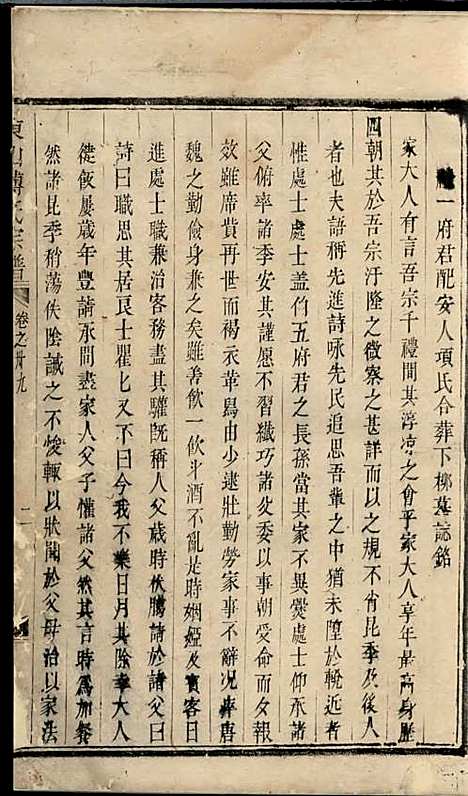 一府君配安人項氏合葬下柳墓誌銘
家大人有言吾宗千禮間其淳凉之會乎家大人享年最高身歷
四朝其於吾宗汙隆之微察之甚詳而以之規不肖昆季及後人
者也夫語稱先進詩咏先民追思吾輩之中猶未墮於輓近者
惟處士處士盖伯五府君之長孫當其家不異爨處士仰承諸
父俯率諸季安其謹愿不習纖巧諸父委以事朝受命而夕報
效雖席貲再世而褐衣革舄由少逮壯勤勞家事不辭况瘁唐
魏之勤儉身兼之矣雖善飲一飲斗酒不亂是時姻婭及賓客日
進處士職兼治客務盡其驩旣稱人父歲時伏臘請於諸父曰
詩曰職思其居良士瞿匕又不曰今我不樂日月其除幸大人
健飯屢歲年豐請承間盡家人父子懽諸父然其言時爲加餐
然諸昆季稍蕩佚陰誡之不悛輙以狀聞於父母治以家法
東山傅氏宗譜
卷之卅九
二